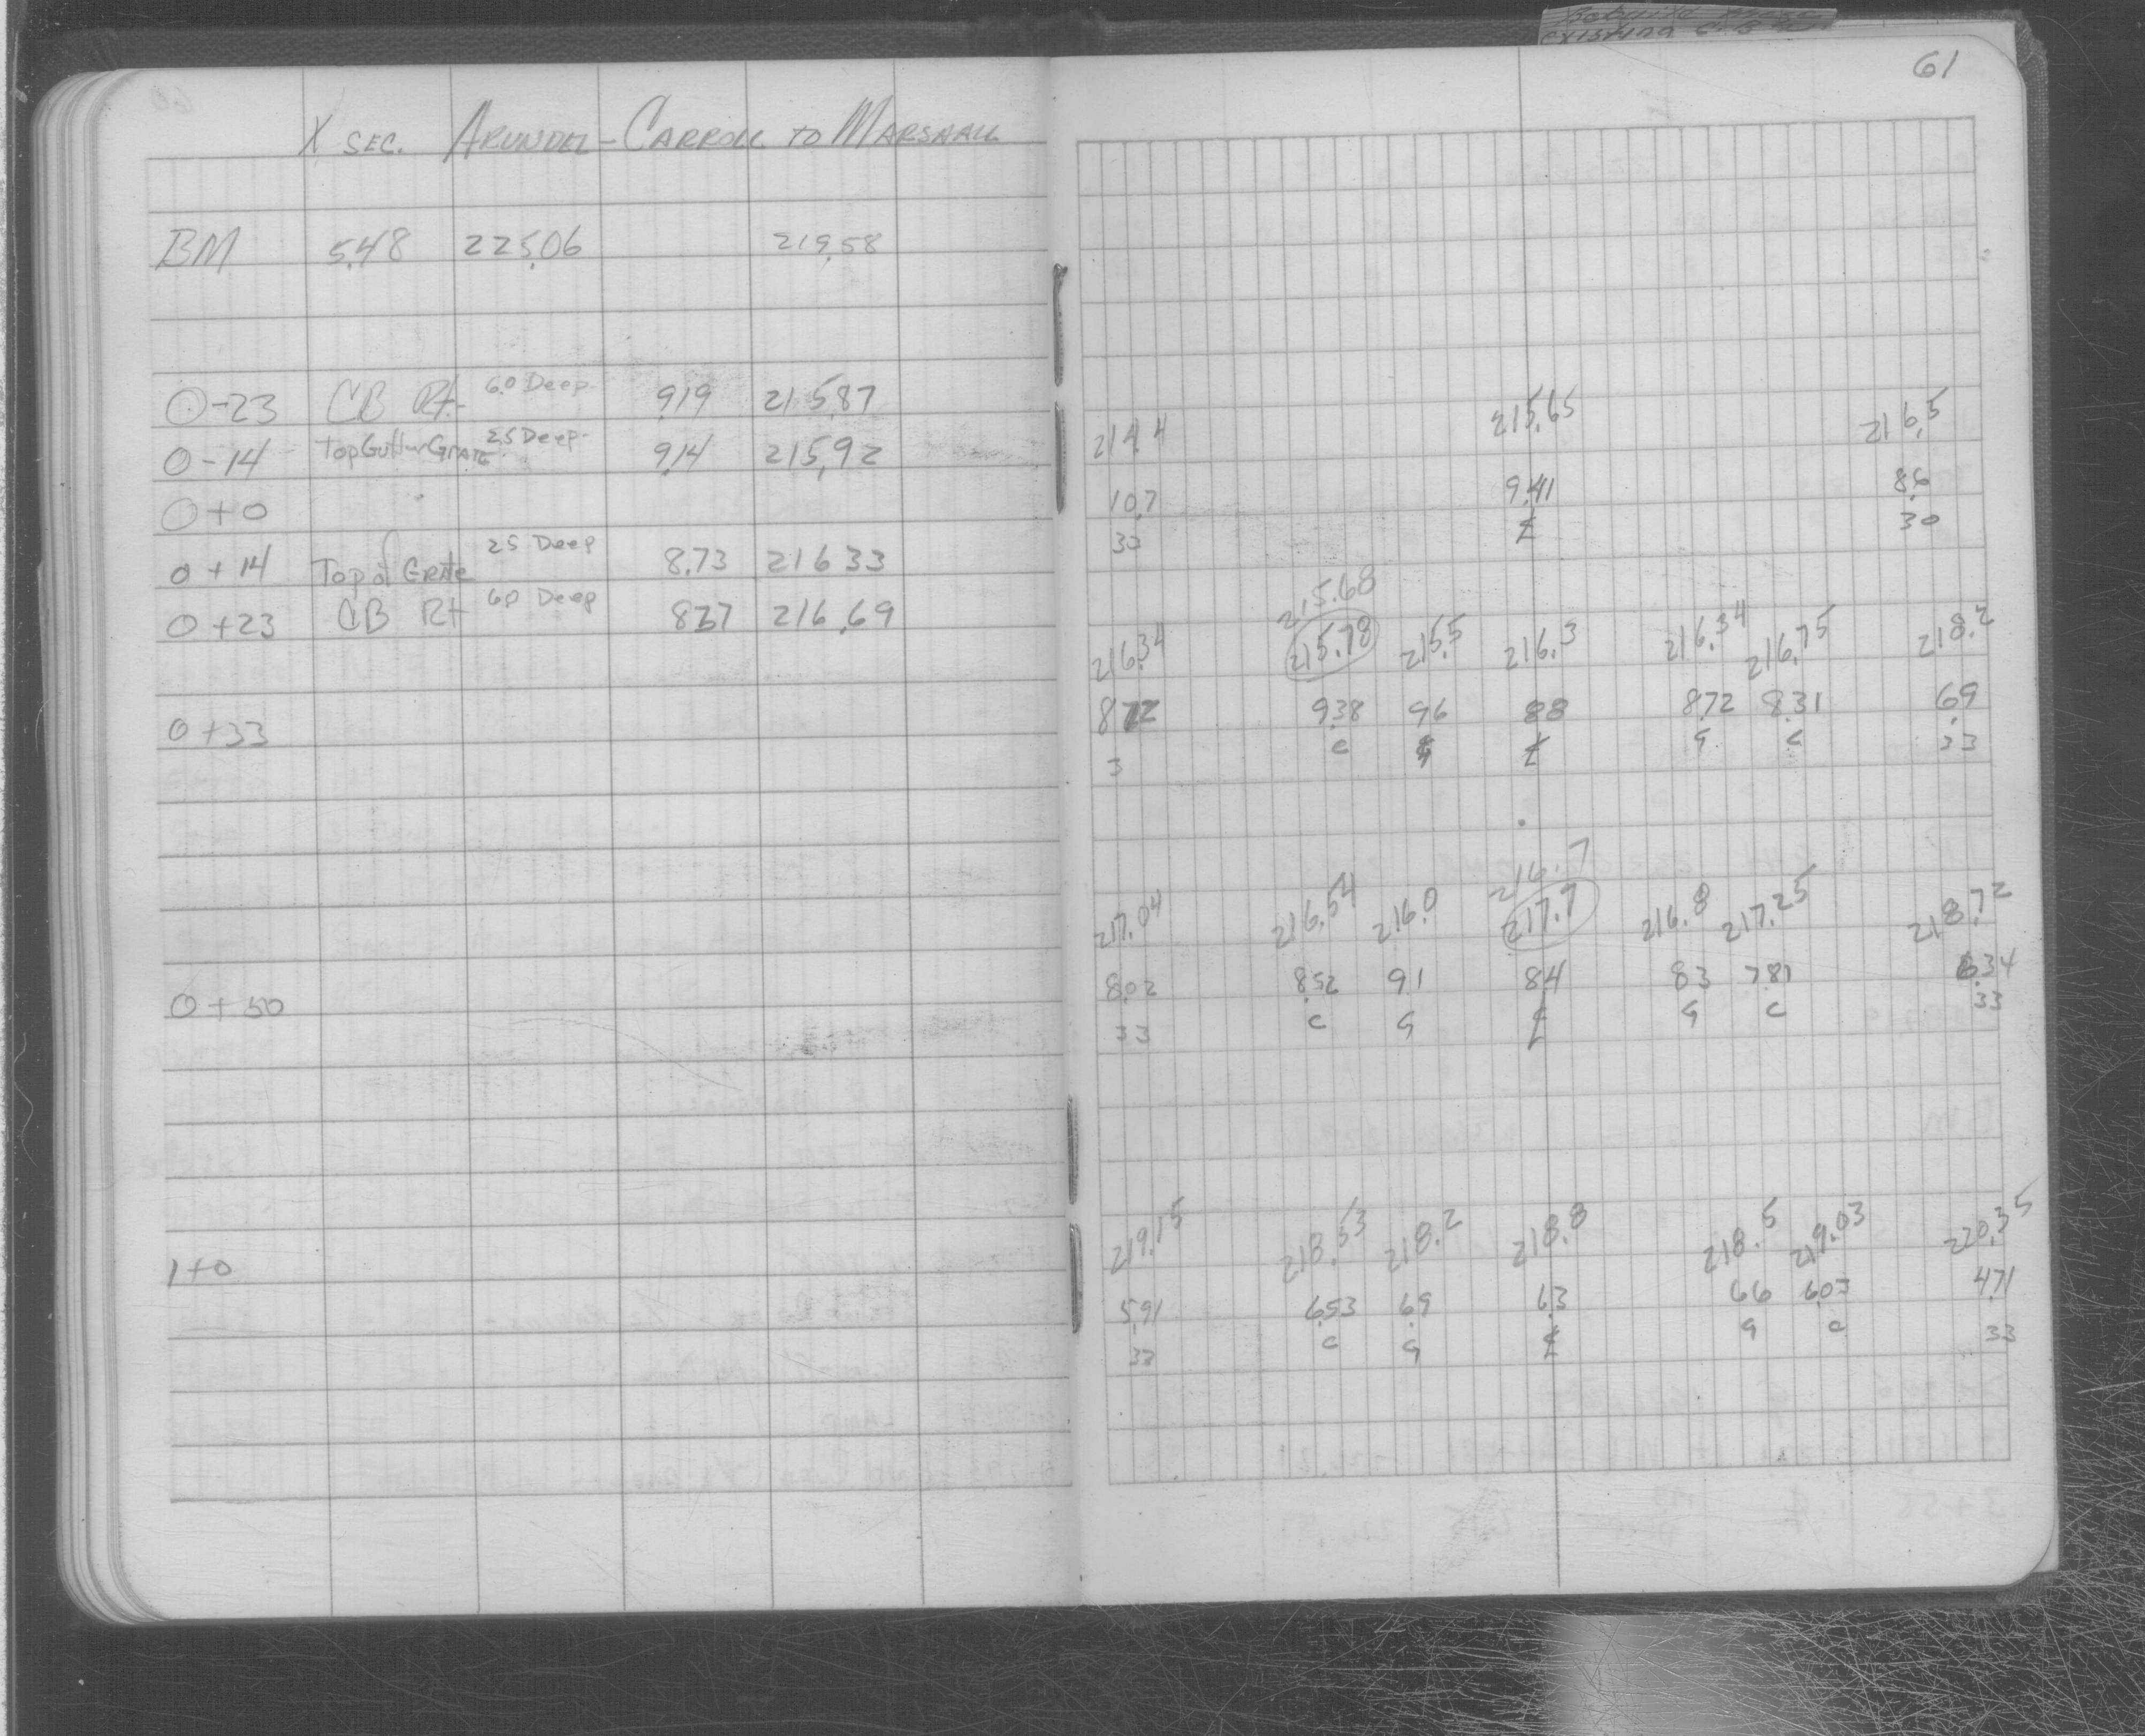 61
X SEC. ARUNDEL - CARROLL TO MARSHALL
BM 5.48 225.06 219.58
0-23 CB Rt- 6.0 Deep- 9.19 215.87
0-14 Top Gutter GRATE 2.5 Deep- 9.14 215.92
0+0
0+14 Top of GRATE 2.5 Deep 8.73 216 33
0+23 CB Rt 6.0 Deep 8.37 216.69
0+33
0+50
1+0
214.4 215.65 216.5
10.7 9.41 8.6
30 ℄ 30
215.68
216.34 215.78 215.5 216.3 216.34 216.75 218.2
8.72 9.38 9.6 8.8 8.72 8.31 6.9
3 C G ℄ G C 33
216.7
217.04 216.54 216.0 217.7 216.8 217.25 218.72
8.02 8.52 9.1 8.4 8.3 7.81 6.34
33 C G ℄ G C 33
219.15 218.53 218.2 218.8 218.5 219.03 220.35
5.91 6.53 6.9 6.3 6.6 6.03 4.71
33 C G ℄ G C 33